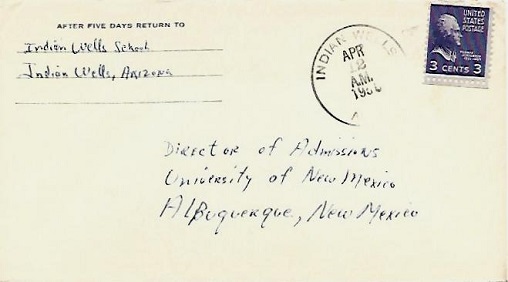 AFTER FIVE DAYS RETURN TO
Indian Wells School
Indian Wells, Arizona
INDIAN WELLS
APR
12
A.M.
UNITED
STATES
POSTAGE
3 CENTS 3
Director of Admissions
University of New Mexico
Albuquerque, New Mexico